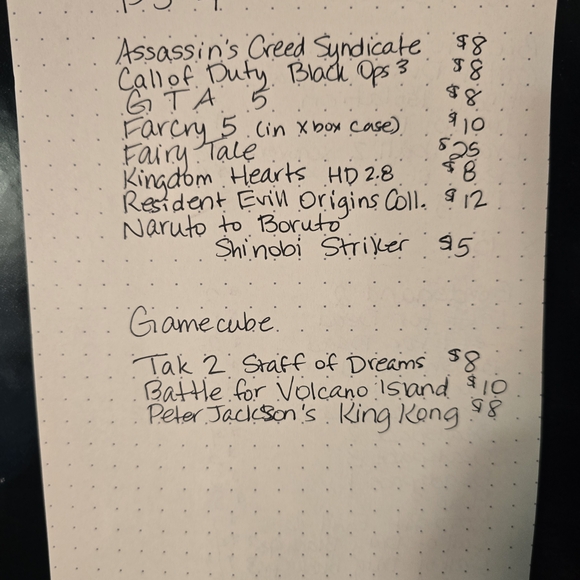 PS4
Assassin's Creed Syndicate $8
Call of Duty Black Ops 3 $8
GTA 5 $8
Farcry 5 (in xbox case) $10
Fairy Tale $25
Kingdom Hearts HD 2.8 $8
Resident Evill Origins Coll. $12
Naruto to Boruto
Shinobi Striker $5
Gamecube.
Tak 2 Staff of Dreams $8
Battle for Volcano Island $10
Peter Jackson's King Kong $8